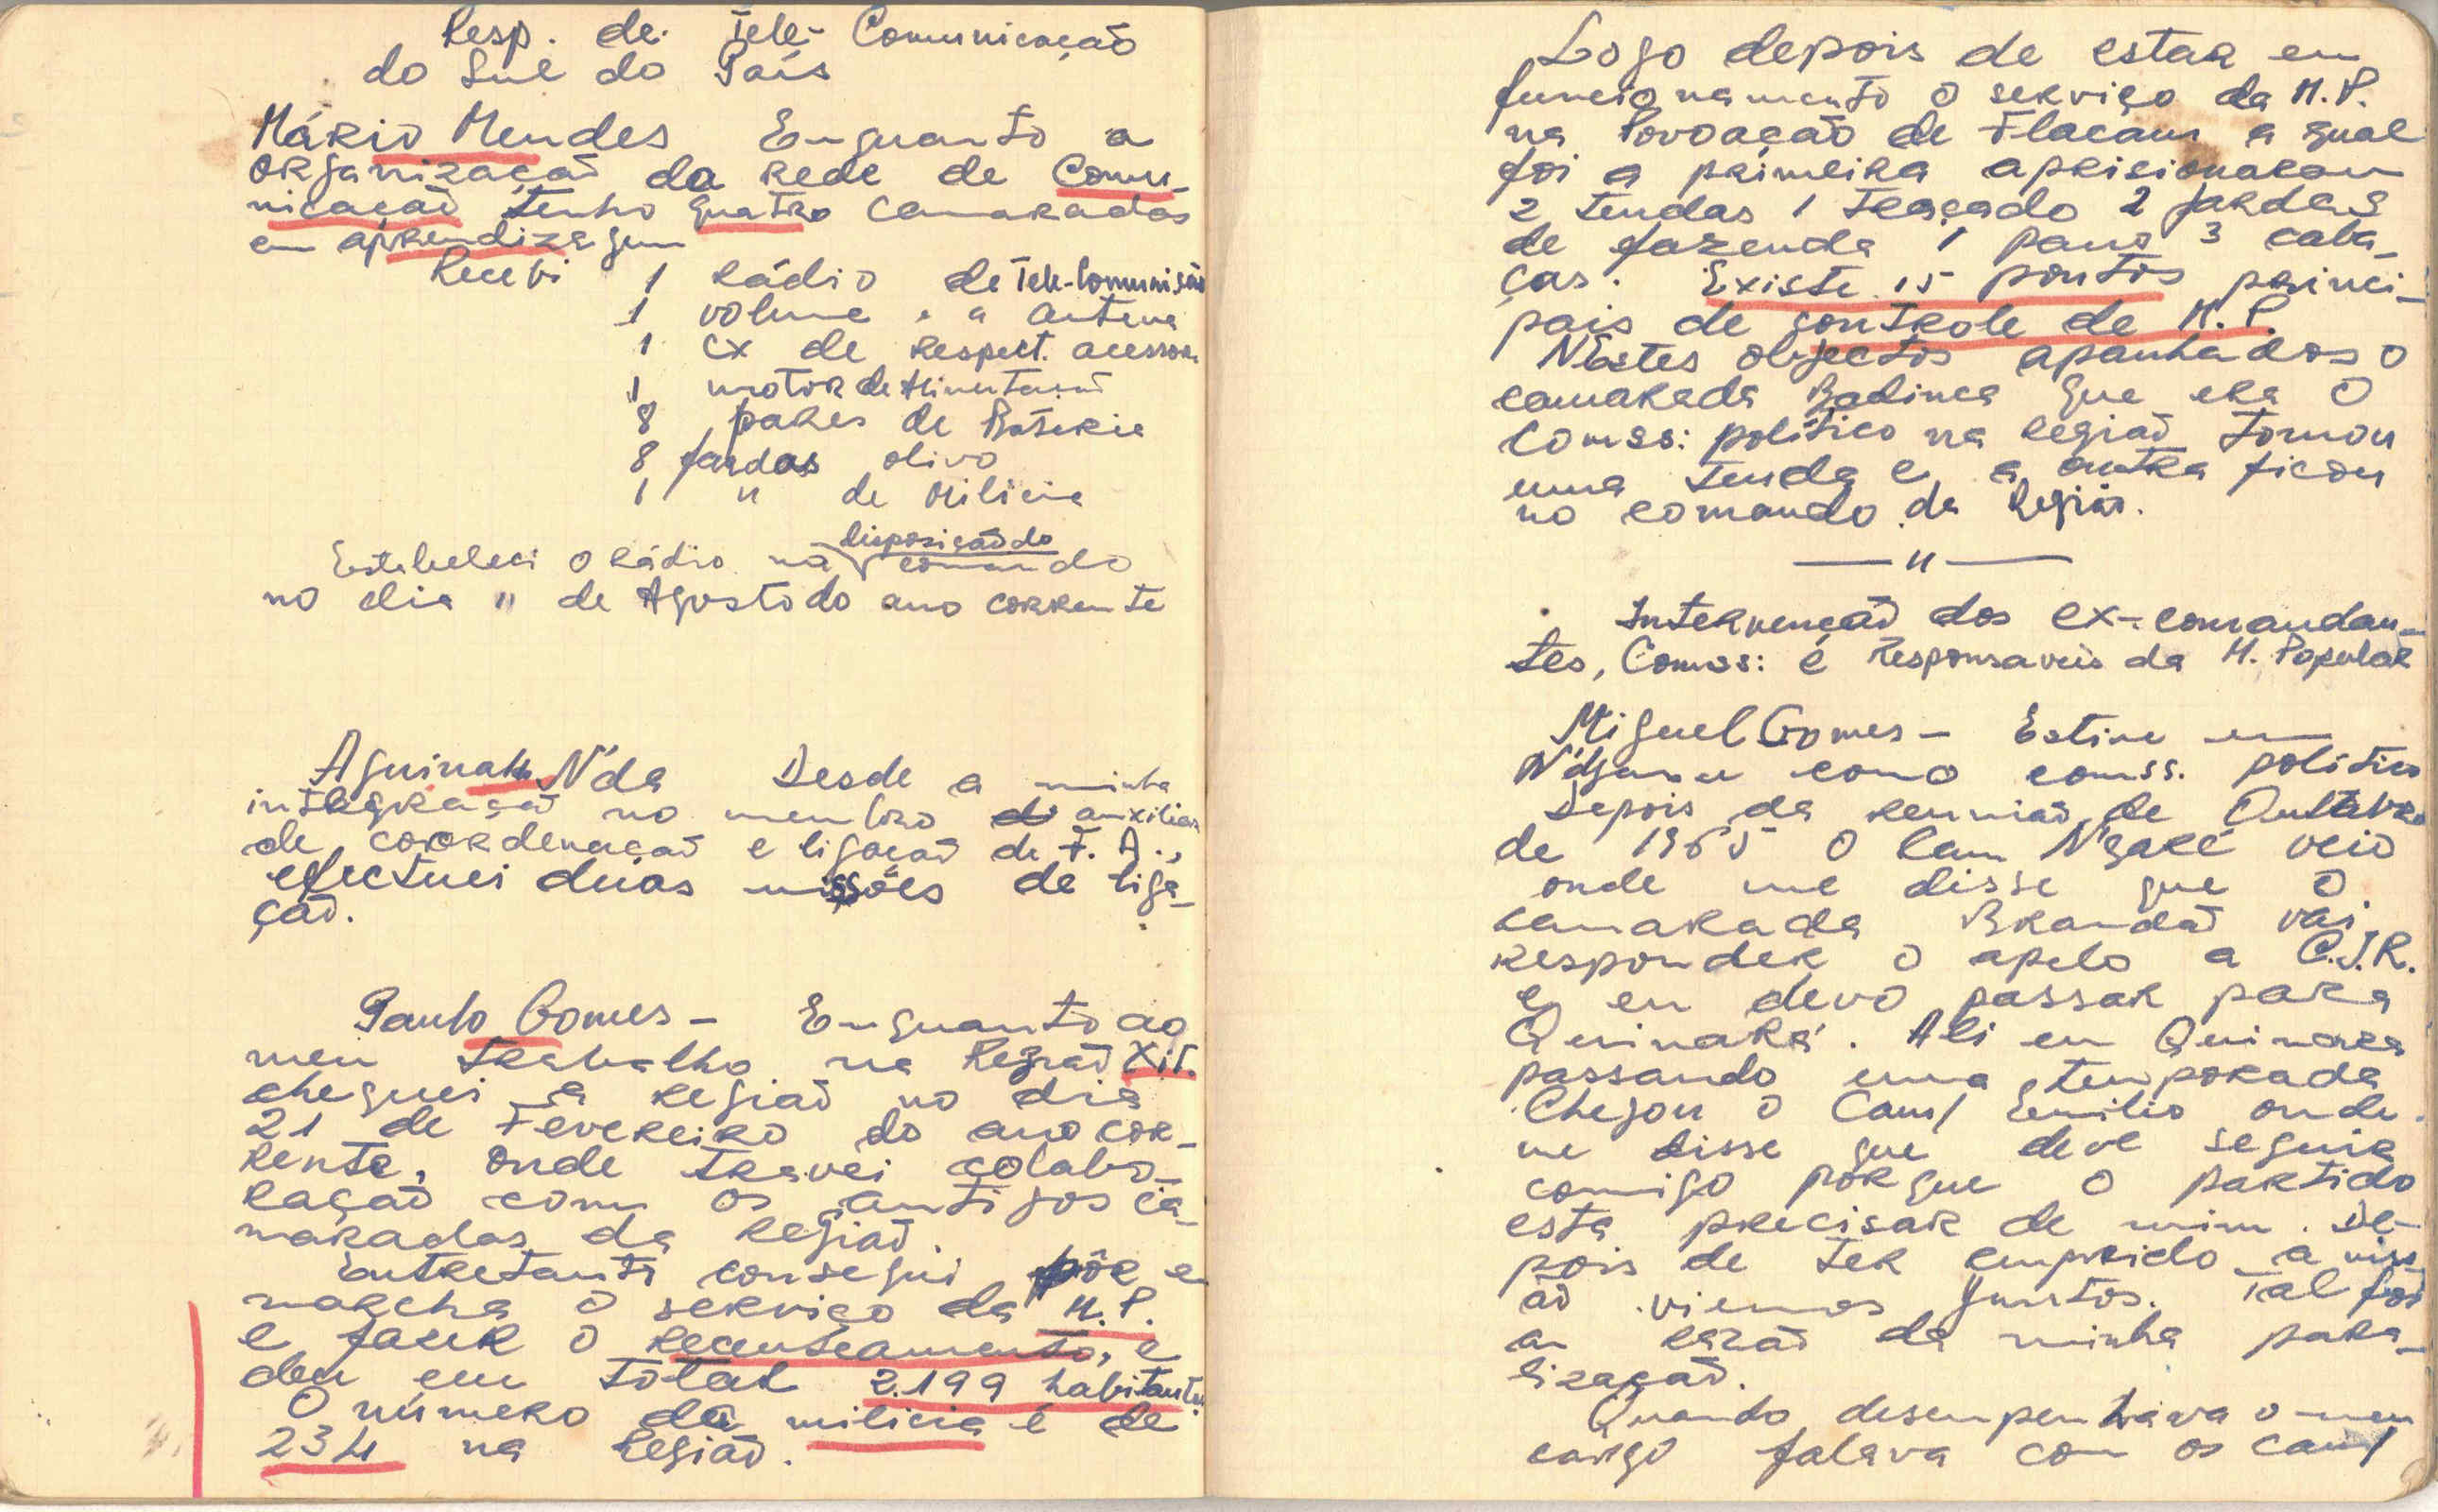 Resp. de Tele-Comunicação
do Sul do País
Mário Mendes Enquanto a
organização da rede de Comu-
nicação tenho quatro camaradas
em aprendizagem
Recebi 1 Rádio de Tele-Comunisão
1 volume " " antena
1 cx de respect. acessor.
1 motor de Alimentação
8 pares de Bateria
8 fardas olivo
1 " de Milicia
Estabeleci o Rádio na disposição do comando
no dia 11 de Agosto do ano corrente
Aguinalo N'da Desde a minha
integração no membro de auxiliar
de coordenação e ligação de F. A.,
efectuei duas missões de liga-
ção.
Paulo Gomes - Enquanto ao
meu trabalho na Região Xit.
cheguei a região no dia
21 de Fevereiro do ano cor-
rente, onde travei colabo-
ração com os antigos ca-
maradas da região.
Entretanto consegui pôr e
marcha o serviço da M.P.
e fazer o recenseamento, e
deu em total 2.199 habitantes
O número da milicia é de
234 na Região.
Logo depois de estar em
funcionamento o serviço da M.P.
na Povoação de Flacam a qual
foi a primeira aprisionaram
2 tendas 1 traçado 2 fardas
de fazenda 1 pano 3 caba-
ças. Existe 15 pontos princi-
pais de controle de M.P.
Nestes objectos apanhados o
camarada Badinca que era o
Comss: político na região tomou
uma tenda e a outra ficou
no comando da Região.
— " —
Intervenção dos ex-comandan-
tes, Comss: e Responsaveis da M. Popular
Miguel Gomes - Estive em
como comss. politico
Depois da reunião de Outubro
de 1965 o Cam N'garé veio
onde me disse que o
camarada Brandão vai
responder o apelo a C.I.R.
e eu devo passar para
Quinará. Ali em Quinara
passando uma temporada
Chegou o Cam/ Emilio onde
me disse que deve seguir
comigo porque o partido
esta precisar de mim. De-
pois de ter cumprido a miss-
ão viemos juntos. Tal foi
a razão da minha para-
lização.
Quando desempenhava o meu
cargo falava com os cam/